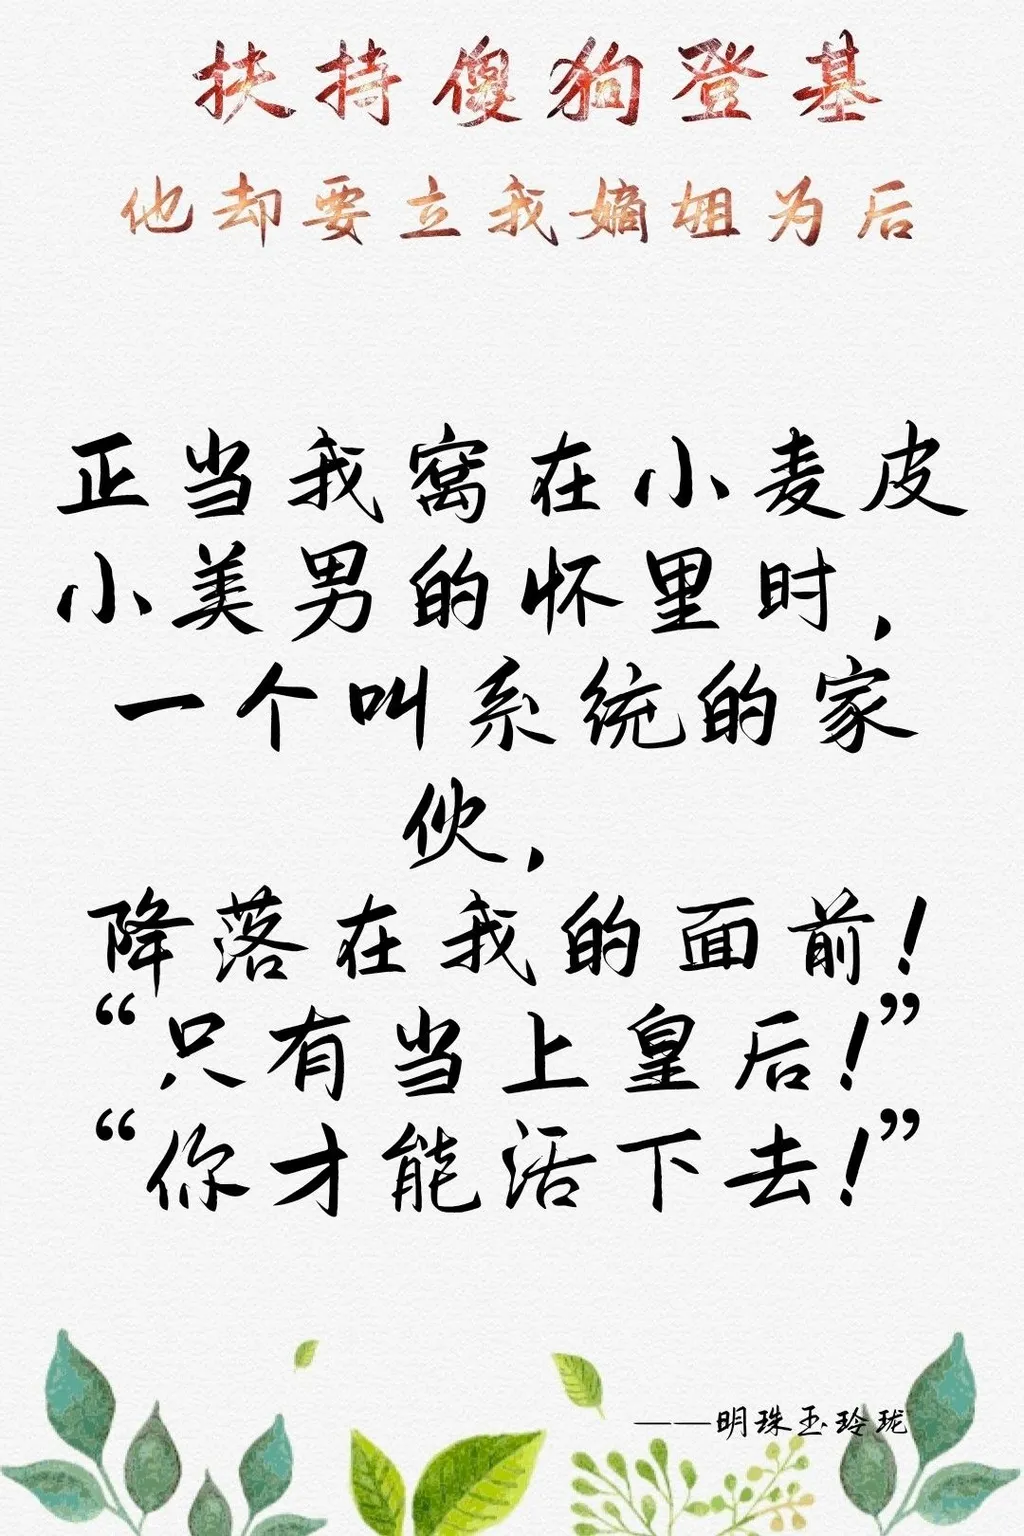 扶持傻狗登基
他却要立我嫡姐为后
正当我窝在小麦皮
小美男的怀里时，
一个叫系统的家
伙，
降落在我的面前！
“只有当上皇后！”
“你才能活下去！”
——明珠玉玲珑